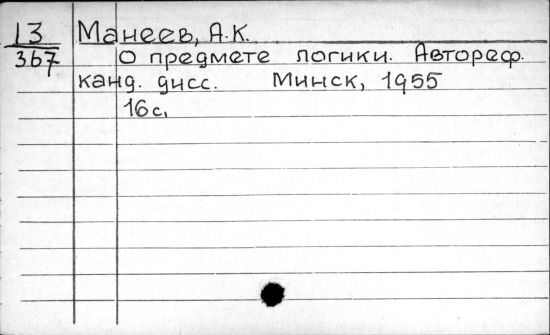 13 Манеев, А.К.
367 О предмете логики. Автореф.
канд. дисс. Минск, 1955
16 с.